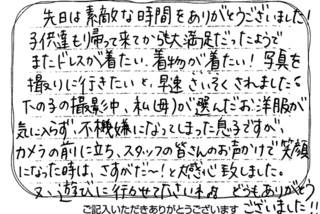 先日は素敵な時間をありがとうございました!
子供達も帰って来てから大満足だったようで
またドレスが着たい、着物が着たい!写真を
撮りに行きたいと、早速さいそくされました。
下の子の撮影中、私(母)が選んだお洋服が
気に入らず、不機嫌になってしまった息子ですが
カメラの前に立ち、スタッフの皆さんのお声がけで笑顔
になった時は、さすがだ〜!と感心致しました。
又、遊びに行かせて下さいね。どうもありがとう
ございました!!
ご記入いただきありがとうございます